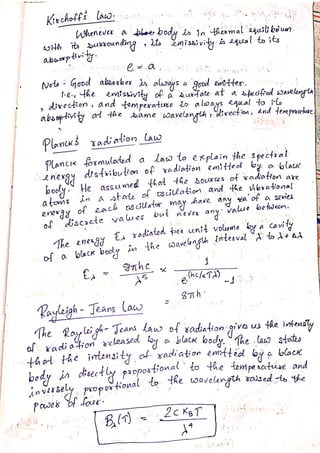 Kirchoff's law.
Whenever a body is in thermal equilibrium
with its surrounding, its emissivity is equal to its
absorptivity.
e = a
Note - Good absorber is always a good emitter.
i.e., the emissivity of a surface at a specified wavelength
, direction, and temperature is always equal to its
absorptivity at the same wavelength, direction, and temperature
Planck's radiation Law
Planck formulated a law to explain the spectral
energy distribution of radiation emitted by a black
body. He assumed that the sources of radiation are
atoms in a state of oscillation and the vibrational
energy of each oscillator may have any of a series
of discrete values but never any value between.
The energy Eλ radiated per unit volume by a cavity
of a black body in the wavelength interval λ to λ+dλ
Eλ = 8πhc/λ⁵ × 1/(e^(hc/kTλ) - 1)
= 8πh
Rayleigh - Jeans Law
The Rayleigh-Jeans law of radiation gives us the intensity
of radiation released by a black body. The law states
that the intensity of radiation emitted by a black
body is directly proportional to the temperature and
inversely proportional to the wavelength raised to the
power of four.
Bλ(T) = 2cK_BT/λ⁴